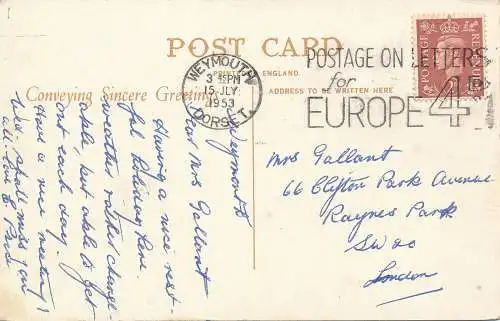 POST CARD
PRINTED IN ENGLAND
Conveying Sincere Greetings
ADDRESS TO BE WRITTEN HERE
WEYMOUTH
3 PM
15 JLY
1953
DORSET
POSTAGE ON LETTERS
for
EUROPE 4
POSTAGE REVENUE
Weymouth
Dear Mrs Gallant
Having a nice rest-
ful holiday here.
Weather rather change-
able, but able to get
out each day.
Have a nice meeting,
Will shall miss you
all. Love E
Mrs Gallant
66 Clifton Park Avenue
Raynes Park
SW20
London